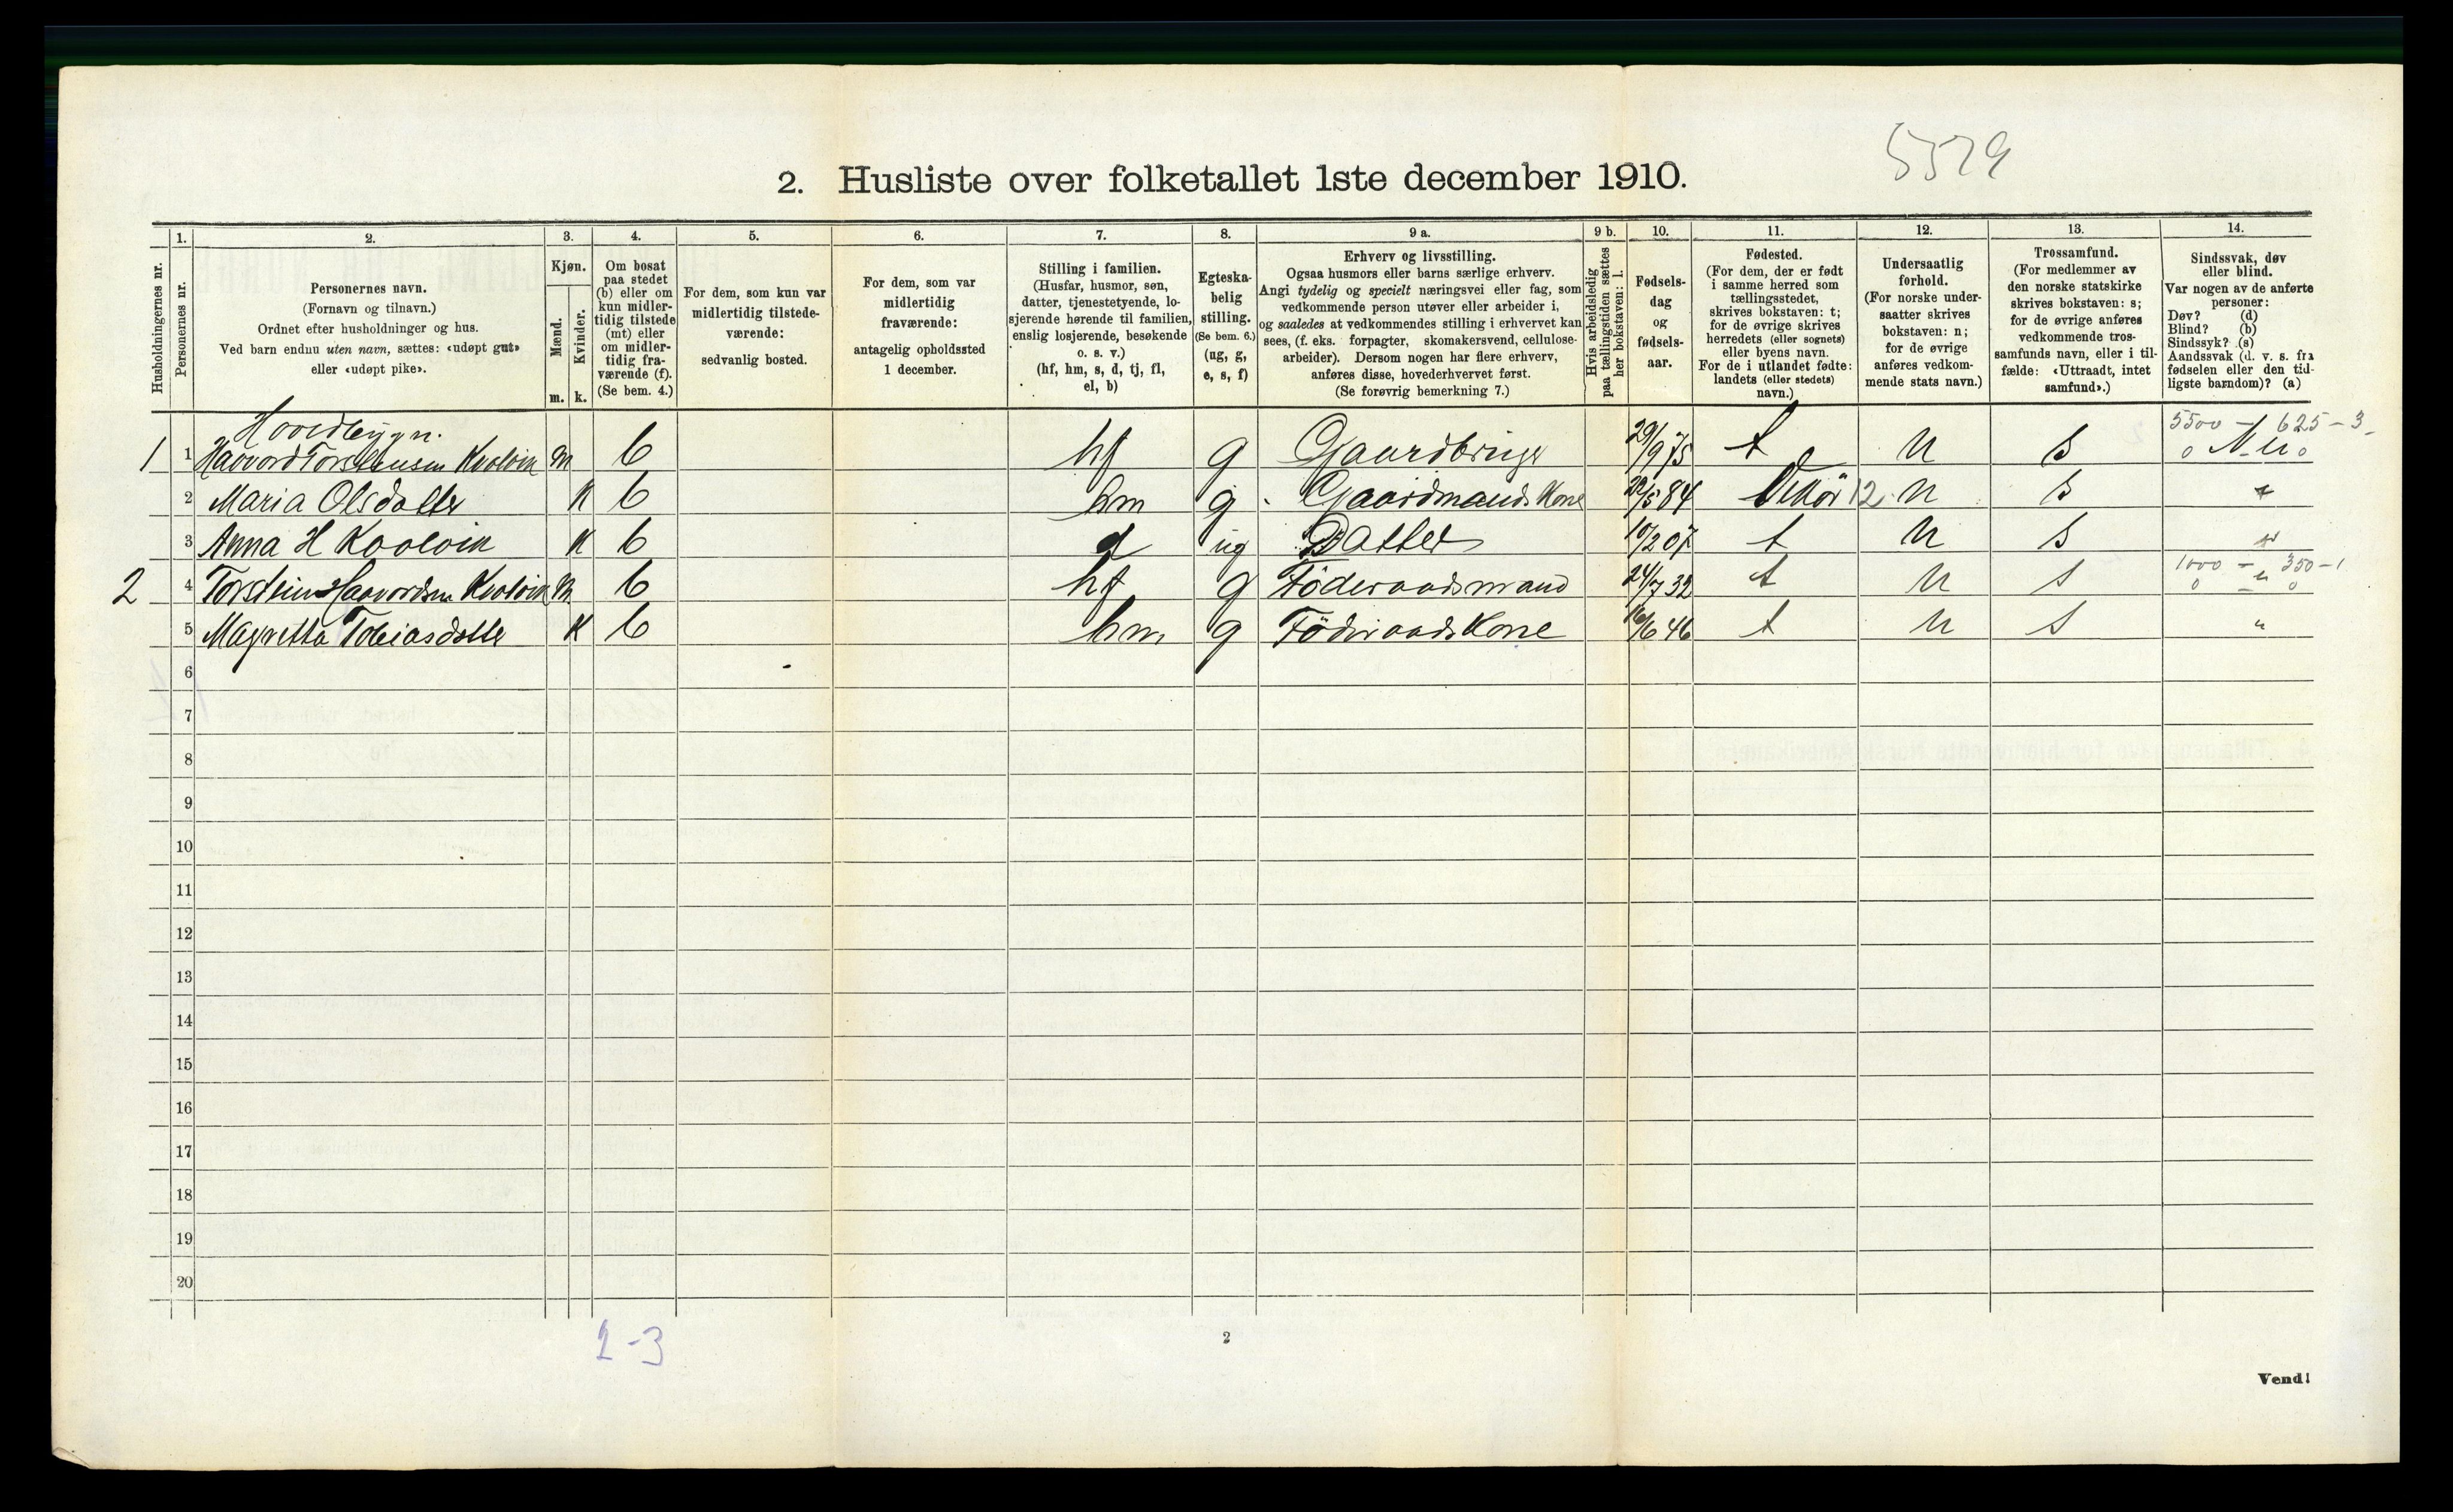 5529
2. Husliste over folketallet 1ste december 1910.
Husholdningernes nr.
1.
Personernes nr.
2.
Personernes navn.
(Fornavn og tilnavn.)
Ordnet efter husholdninger og hus.
Ved barn endnu uten navn, sættes: «udøpt gut»
eller «udøpt pike».
3.
Kjøn.
Mænd.
Kvinder.
m. k.
4.
Om bosat
paa stedet
(b) eller om
kun midler-
tidig tilstede
(mt) eller
om midler-
tidig fra-
værende (f).
(Se bem. 4.)
5.
For dem, som kun var
midlertidig tilstede-
værende:
sedvanlig bosted.
6.
For dem, som var
midlertidig
fraværende:
antagelig opholdssted
1 december.
7.
Stilling i familien.
(Husfar, husmor, søn,
datter, tjenestetyende, lo-
sjerende hørende til familien,
enslig losjerende, besøkende
o. s. v.)
(hf, hm, s, d, tj, fl,
el, b)
8.
Egteska-
belig
stilling.
(Se bem. 6.)
(ug, g,
e, s, f)
9 a.
Erhverv og livsstilling.
Ogsaa husmors eller barns særlige erhverv.
Angi tydelig og specielt næringsvei eller fag, som
vedkommende person utøver eller arbeider i,
og saaledes at vedkommendes stilling i erhvervet kan
sees, (f. eks. forpagter, skomakersvend, cellulose-
arbeider). Dersom nogen har flere erhverv,
anføres disse, hovederhvervet først.
(Se forøvrig bemerkning 7.)
9 b.
Hvis arbeidsledig
paa tællingstiden sættes
her bokstaven: l.
10.
Fødsels-
dag
og
fødsels-
aar.
11.
Fødested.
(For dem, der er født
i samme herred som
tællingsstedet,
skrives bokstaven: t;
for de øvrige skrives
herredets (eller sognets)
eller byens navn.
For de i utlandet fødte:
landets (eller stedets)
navn.)
12.
Undersaatlig
forhold.
(For norske under-
saatter skrives
bokstaven: n;
for de øvrige
anføres vedkom-
mende stats navn.)
13.
Trossamfund.
(For medlemmer av
den norske statskirke
skrives bokstaven: s;
for de øvrige anføres
vedkommende tros-
samfunds navn, eller i til-
fælde: «Uttraadt, intet
samfund».)
14.
Sindssvak, døv
eller blind.
Var nogen av de anførte
personer:
Døv? (d)
Blind? (b)
Sindssyk? (s)
Aandssvak (d. v. s. fra
fødselen eller den tid-
ligste barndom)? (a)
Hovedbygn. 5500 – 625 – 3
1 1 Haavord Torsteinsen Kvolvin m b hf g Gaardbruger 29/9 75 t n s
2 Maria Olsdatter K b hm g Gaardmands Kone 5 84 12 n s
3 Anna H Kvolvin K b d ug Datter 10/2 07 t n s
1000 – 350 – 1
2 4 Torstein Haavordsen Kvolvin m b hf g Föderaadsmand 24/7 32 t n s
5 Magretha Tobiasdatter K b hm g Föderaads Kone 16/6 46 t n s "
6
7
8
9
10
11
12
13
14
15
16
17
18
19
20
2-3
2
Vend!